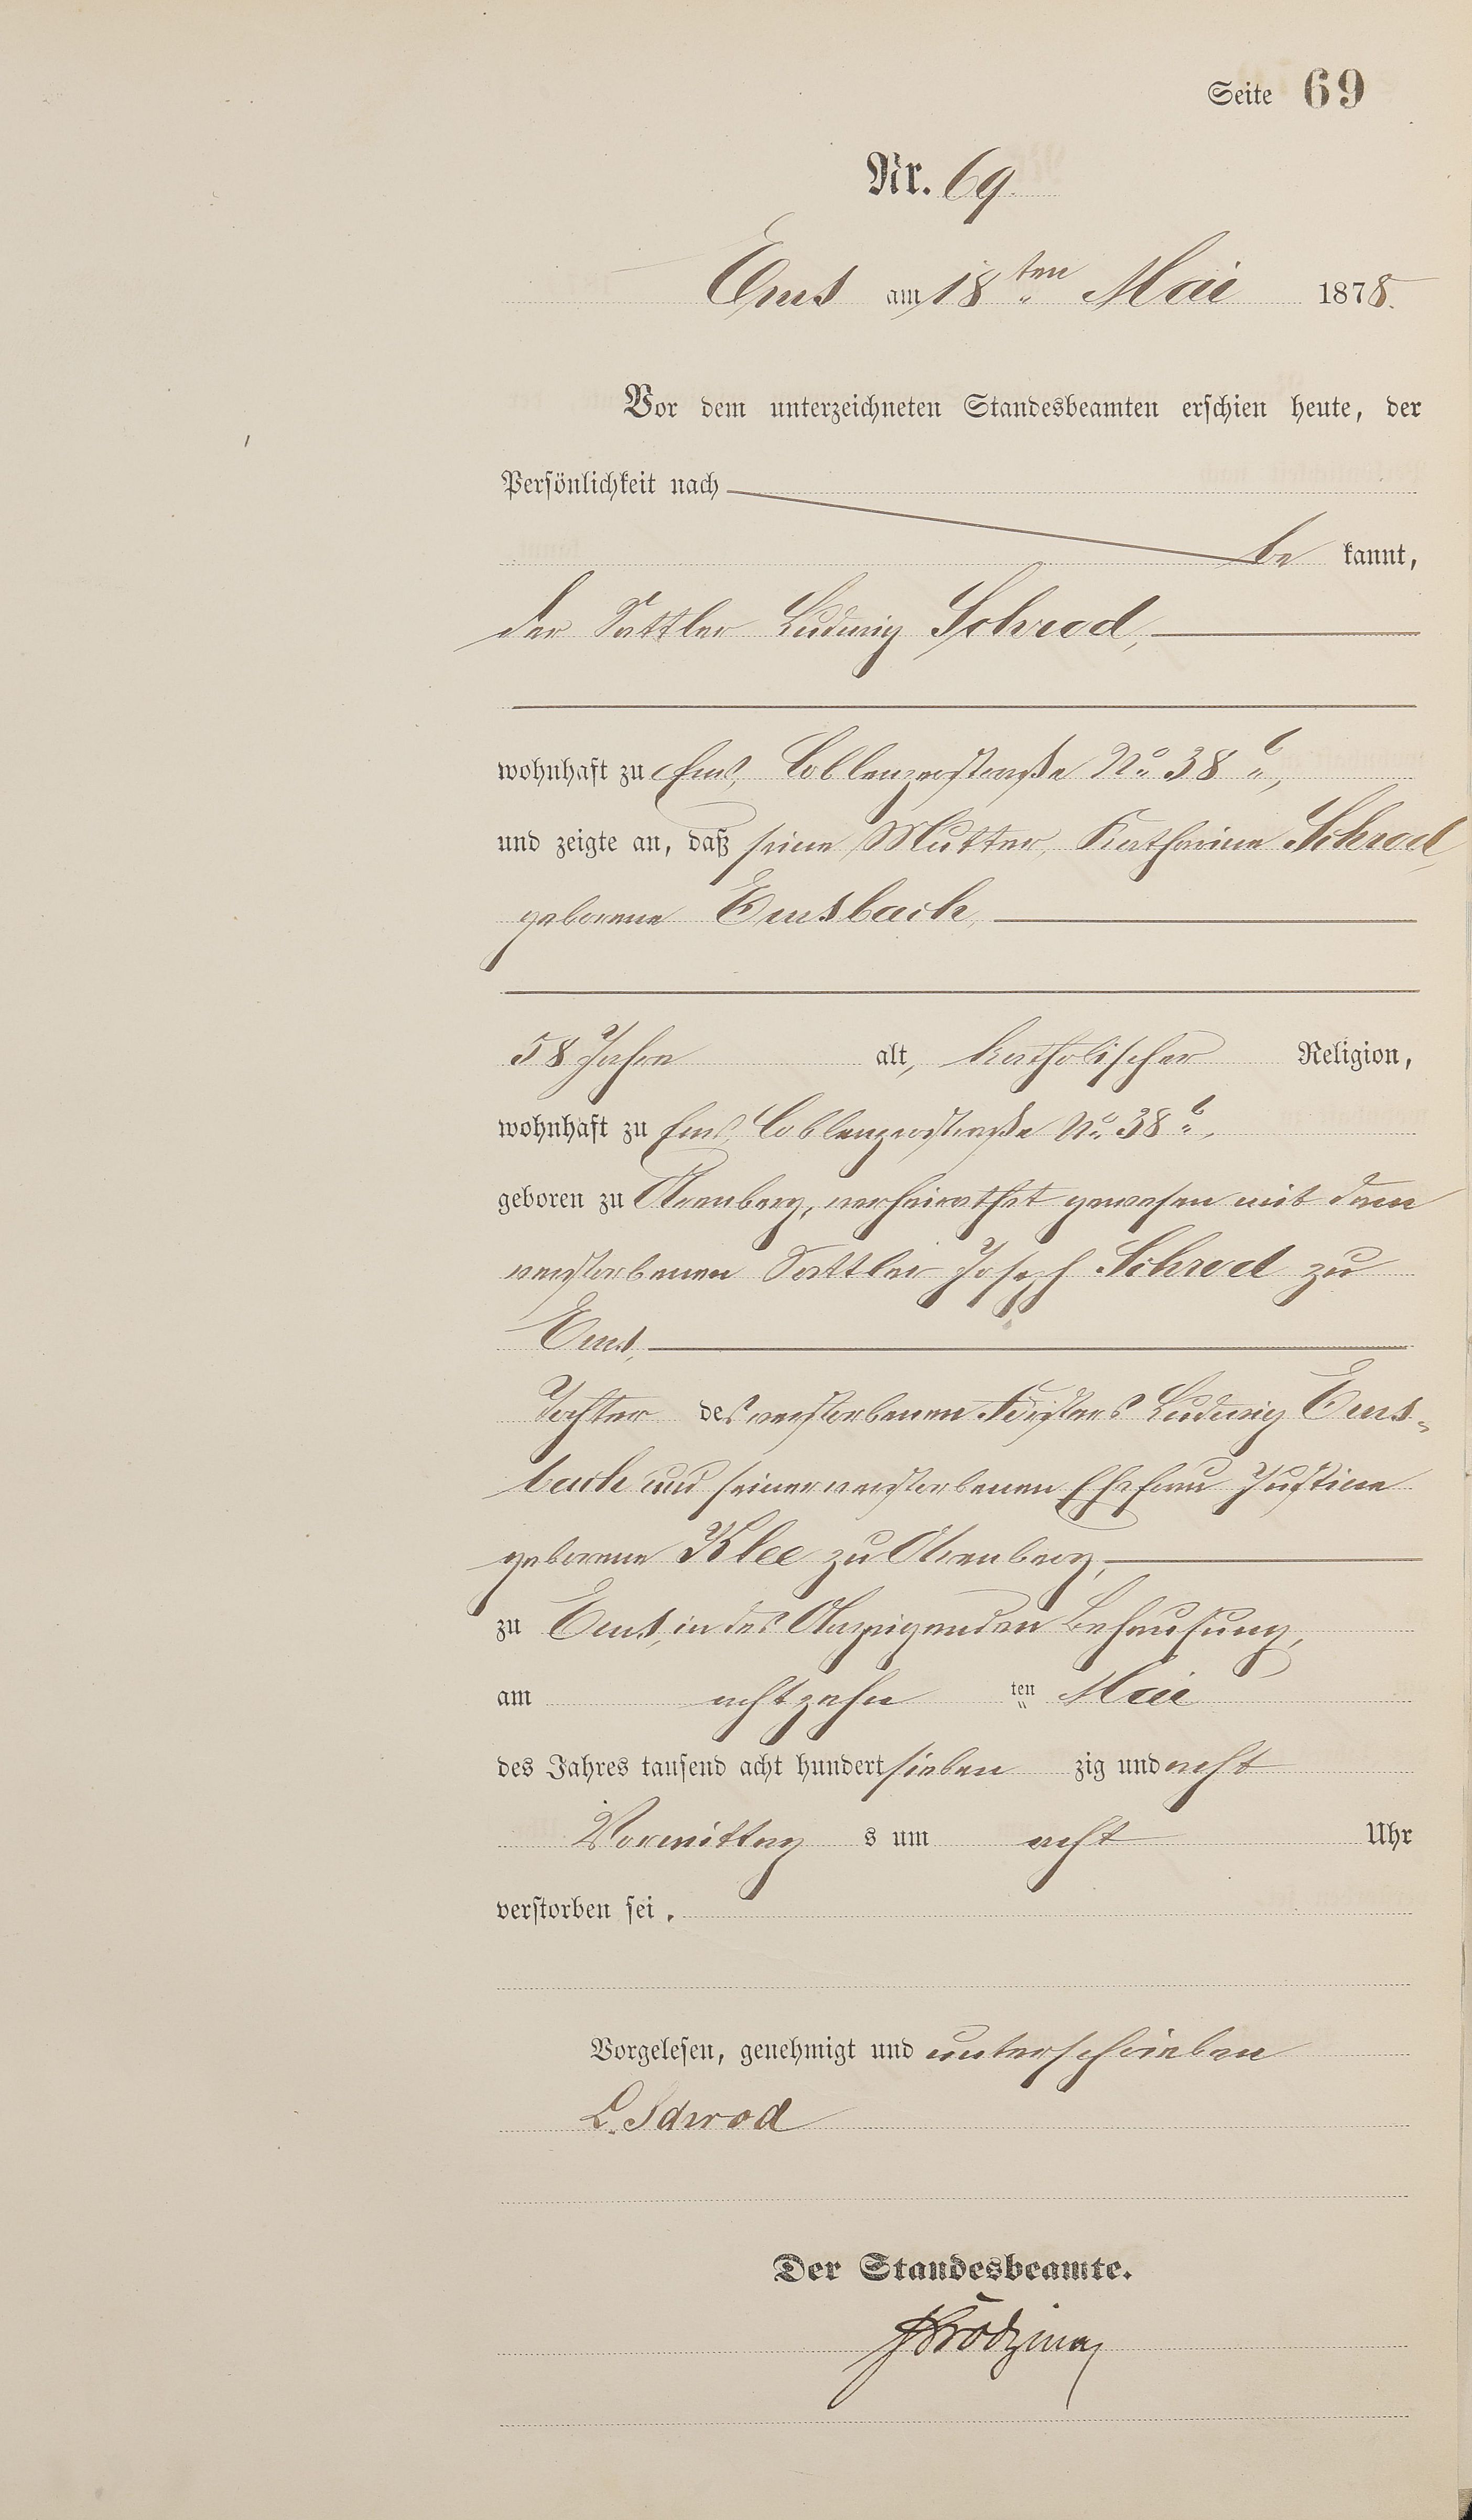 Seite 69
Nr. 69.
Ems am 18ten Mai 1878.
Vor dem unterzeichneten Standesbeamten erschien heute, der
Persönlichkeit nach
be kannt,
der Sattler Ludwig Schrod,
wohnhaft zu Ems, Coblenzerstraße No 38 b,
und zeigte an, daß seine Mutter, Katharine Schrod,
geborene Emsbach,
58 Jahre alt, katholischer Religion,
wohnhaft zu Ems, Coblenzerstraße No 38 b,
geboren zu Arenberg, verheirathet gewesen mit dem
verstorbenen Sattler Joseph Schrod zu
Ems,
Tochter des verstorbenen Küsters Ludwig Ems-
bach und seiner verstorbenen Ehefrau Justine
geborene Klee zu Arenberg,
zu Ems, in des Anzeigenden Behausung,
am achtzehn ten Mai
des Jahres tausend acht hundert sieben zig und acht
Vormittag s um acht Uhr
verstorben sei.
Vorgelesen, genehmigt und unterschrieben
L. Schrod
Der Standesbeamte.